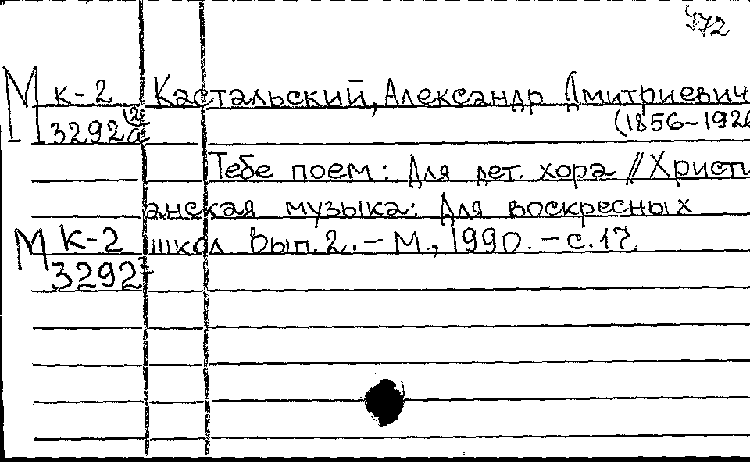 972
М к-2 Кастальский, Александр Дмитриевич
3292 (2) (1856-1926
Тебе поем: Для дет. хора // Христи
анская музыка: Для воскресных
М к-2 школ Вып. 2. - М., 1990. - с. 17
3292